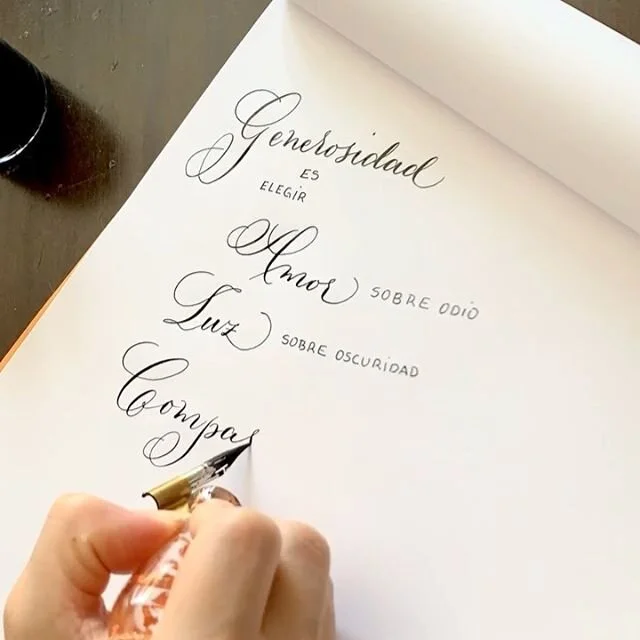 Generosidad
ES
ELEGIR
Amor SOBRE ODIO
Luz SOBRE OSCURIDAD
Compas